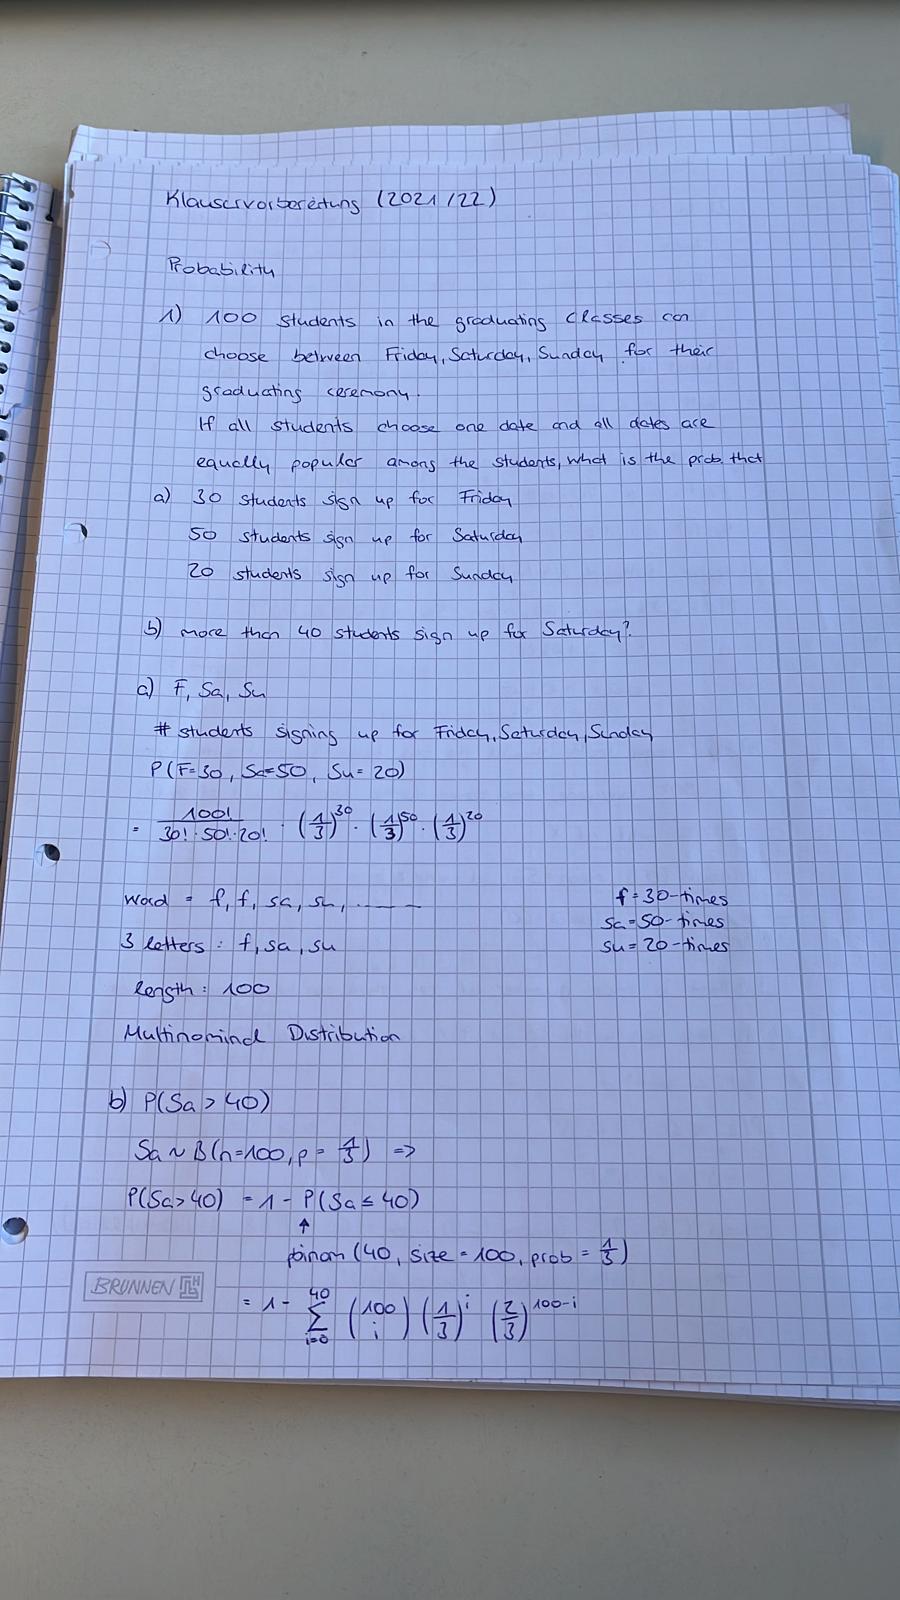 Klausurvorbereitung (2021/22)
Probability
1) 100 students in the graduating classes can
choose between Friday, Saturday, Sunday for their
graduating ceremony.
If all students choose one date and all dates are
equally popular among the students, what is the prob. that
a) 30 students sign up for Friday
50 students sign up for Saturday
20 students sign up for Sunday
b) more than 40 students sign up for Saturday?
a) F, Sa, Su
# students signing up for Friday, Saturday, Sunday
P(F=30, Sa=50, Su=20)
= 100!/(30!·50!·20!) · (1/3)^30 · (1/3)^50 · (1/3)^20
Word = f, f, sa, su, ....... f=30-times
sa=50-times
3 letters: f, sa, su su=20-times
length: 100
Multinomial Distribution
b) P(Sa > 40)
Sa ~ B(n=100, p = 1/3) =>
P(Sa>40) = 1 - P(Sa ≤ 40)
↑
pbinom (40, size = 100, prob = 1/3)
BRUNNEN
= 1 - ∑_{i=0}^{40} (100 i) (1/3)^i (2/3)^{100-i}